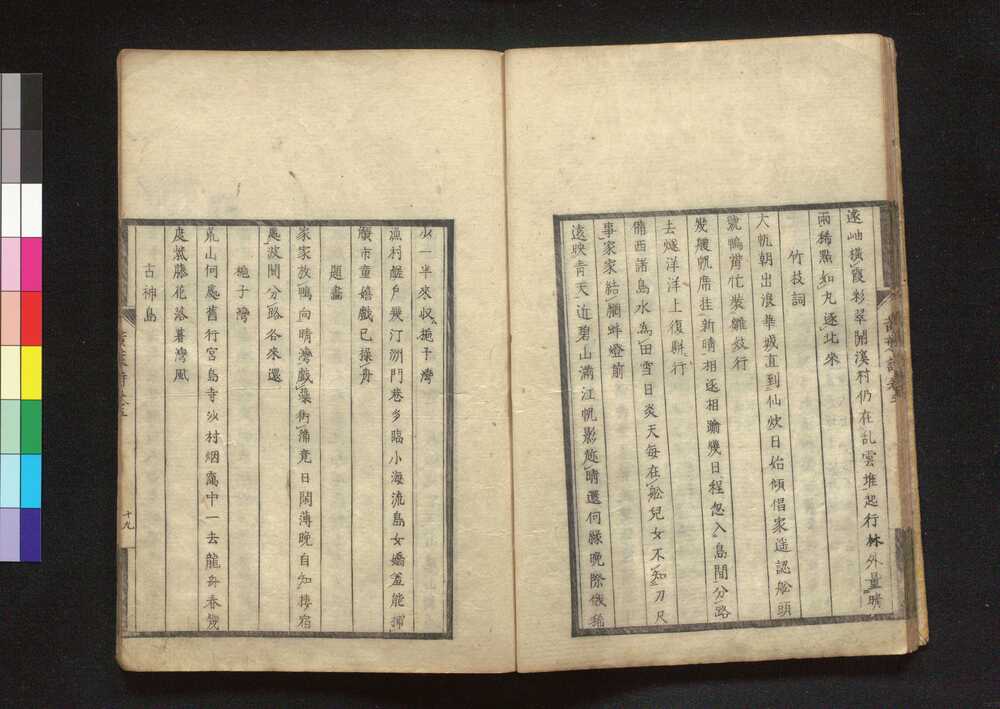 遂岫橫霞彩翠開溪村仍在乱雲堆起行林外量晴
雨稀點如丸逐北來
竹枝詞
大帆朝出浪華城直到仙炊日始傾倡家遙認舩頭
號鴫觜忙裝雛妓行
幾艘帆席挂新晴相逐相踰幾日程忽入島間分路
去燧洋洋上復駢行
備西諸島水為田雪日炎天每在舩兒女不知刀尺
事家家結網蚌燈前
遠映青天近碧山滿江帆影晴還何緣晚際俄稀
少一半來収梔子灣
漁村蜑戶幾汀洲門巷多臨小海流島女嬌羞能掃
蠣市童嬉戲已操舟
題畫
家家放鴫向晴灣戲集術蒲竟日閑薄晚自知棲宿
處波間分路各來還
梔子灣
荒山何處舊行宮島寺沙村烟靄中一去龍舟春幾
度紫藤花落暮灣風
古神島
十九